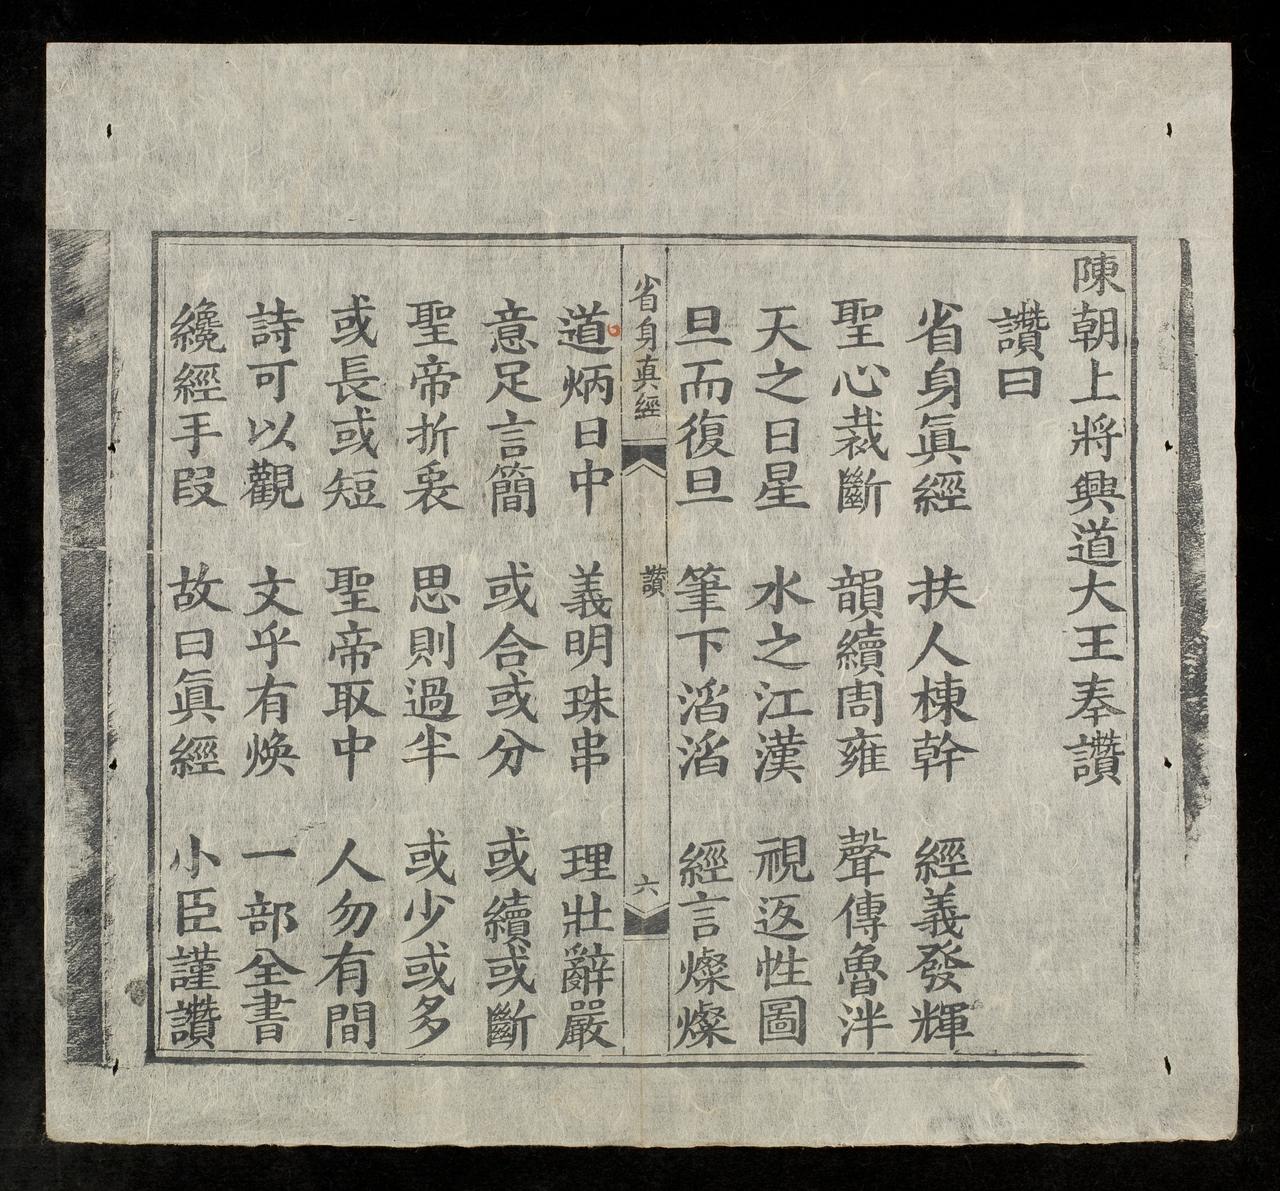 陳朝上將興道大王奉讚
讚曰
省身眞經 扶人棟幹 經義發輝
聖心裁斷 韻續周雍 聲傳魯泮
天之日星 水之江漢 視返性圖
旦而復旦 筆下滔滔 經言燦燦
省身真經 讚 六
道炳日中 義明珠串 理壯辭嚴
意足言簡 或合或分 或續或斷
聖帝折衷 思則過半 或少或多
或長或短 聖帝取中 人勿有間
詩可以觀 文乎有煥 一部全書
纔經手段 故曰眞經 小臣謹讚